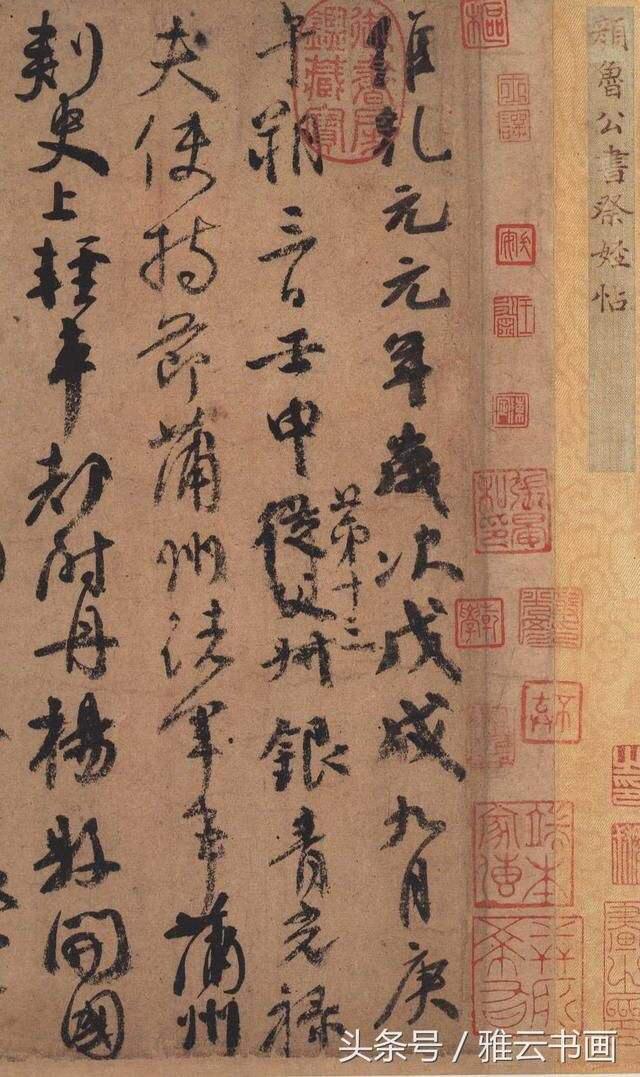 顏魯公書祭姪帖
御書房鑑藏寶
維乾元元年歲次戊戌九月庚
午朔三日壬申第十三從父叔銀青光祿
夫使持節蒲州諸軍事蒲州
刺史上輕車都尉丹楊縣開國
头条号 / 雅云书画